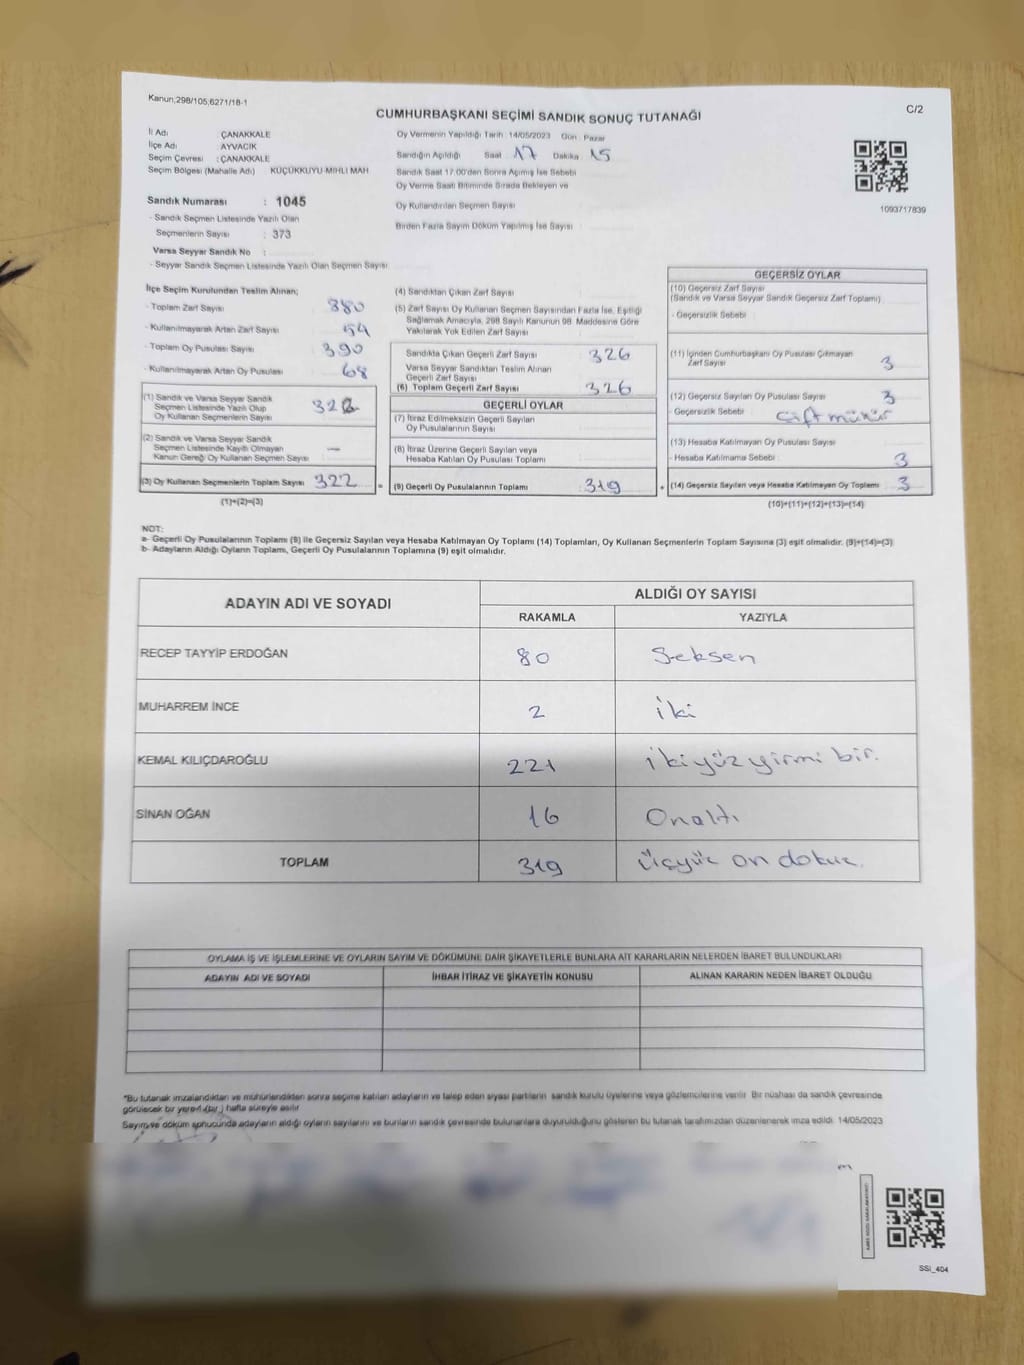 Kanun;298/105;6271/18-1
C/2
CUMHURBAŞKANI SEÇİMİ SANDIK SONUÇ TUTANAĞI
İl Adı ÇANAKKALE
İlçe Adı : AYVACIK
Seçim Çevresi : ÇANAKKALE
Seçim Bölgesi (Mahalle Adı) KÜÇÜKKUYU-MIHLI MAH
Oy Vermenin Yapıldığı Tarih : 14/05/2023 Gün : Pazar
Sandığın Açıldığı Saat 17 Dakika 15
Sandık Saat 17.00'den Sonra Açımış İse Sebebi
Oy Verme Saati Bitiminde Sırada Bekleyen ve
Oy Kullandırılan Seçmen Sayısı
Birden Fazla Sayım Döküm Yapılmış İse Sayısı
1093717839
Sandık Numarası : 1045
- Sandık Seçmen Listesinde Yazılı Olan
Seçmenlerin Sayısı : 373
Varsa Seyyar Sandık No :
- Seyyar Sandık Seçmen Listesinde Yazılı Olan Seçmen Sayısı
İlçe Seçim Kurulundan Teslim Alınan;
- Toplam Zarf Sayısı 380
- Kullanılmayarak Artan Zarf Sayısı 54
- Toplam Oy Pusulası Sayısı 390
- Kullanılmayarak Artan Oy Pusulası 68
(1) Sandık ve Varsa Seyyar Sandık
Seçmen Listesinde Yazılı Olup
Oy Kullanan Seçmenlerin Sayısı 322
(2) Sandık ve Varsa Seyyar Sandık
Seçmen Listesinde Kayıtlı Olmayan
Kanun Gereği Oy Kullanan Seçmen Sayısı —
(3) Oy Kullanan Seçmenlerin Toplam Sayısı 322
(1)+(2)=(3)
(4) Sandıktan Çıkan Zarf Sayısı
(5) Zarf Sayısı Oy Kullanan Seçmen Sayısından Fazla İse, Eşitliği
Sağlamak Amacıyla, 298 Sayılı Kanunun 98. Maddesine Göre
Yakılarak Yok Edilen Zarf Sayısı
Sandıkta Çıkan Geçerli Zarf Sayısı 326
Varsa Seyyar Sandıktan Teslim Alınan
Geçerli Zarf Sayısı
(6) Toplam Geçerli Zarf Sayısı 326
GEÇERLİ OYLAR
(7) İtiraz Edilmeksizin Geçerli Sayılan
Oy Pusulalarının Sayısı
(8) İtiraz Üzerine Geçerli Sayılan veya
Hesaba Katılan Oy Pusulası Toplamı
= (9) Geçerli Oy Pusulalarının Toplamı 319 +
GEÇERSİZ OYLAR
(10) Geçersiz Zarf Sayısı
(Sandık ve Varsa Seyyar Sandık Geçersiz Zarf Toplamı)
- Geçersizlik Sebebi
(11) İçinden Cumhurbaşkanı Oy Pusulası Çıkmayan
Zarf Sayısı 3
(12) Geçersiz Sayılan Oy Pusulası Sayısı 3
- Geçersizlik Sebebi : Çift mühür
(13) Hesaba Katılmayan Oy Pusulası Sayısı
- Hesaba Katılmama Sebebi : 3
(14) Geçersiz Sayılan veya Hesaba Katılmayan Oy Toplamı 3
(10)+(11)+(12)+(13)=(14)
NOT:
a- Geçerli Oy Pusulalarının Toplamı (9) ile Geçersiz Sayılan veya Hesaba Katılmayan Oy Toplamı (14) Toplamları, Oy Kullanan Seçmenlerin Toplam Sayısına (3) eşit olmalıdır. (9)+(14)=(3)
b- Adayların Aldığı Oyların Toplamı, Geçerli Oy Pusulalarının Toplamına (9) eşit olmalıdır.
ADAYIN ADI VE SOYADI ALDIĞI OY SAYISI
RAKAMLA YAZIYLA
RECEP TAYYİP ERDOĞAN 80 Seksen
MUHARREM İNCE 2 iki
KEMAL KILIÇDAROĞLU 221 ikiyüzyirmi bir.
SİNAN OĞAN 16 Onaltı
TOPLAM 319 üçyüz on dokuz.
OYLAMA İŞ VE İŞLEMLERİNE VE OYLARIN SAYIM VE DÖKÜMÜNE DAİR ŞİKAYETLERLE BUNLARA AİT KARARLARIN NELERDEN İBARET BULUNDUKLARI
ADAYIN ADI VE SOYADI İHBAR İTİRAZ VE ŞİKAYETİN KONUSU ALINAN KARARIN NEDEN İBARET OLDUĞU
*Bu tutanak imzalandıktan ve mühürlendikten sonra seçime katılan adayların ve talep eden siyasi partilerin sandık kurulu üyelerine veya gözlemcilerine verilir. Bir nüshası da sandık çevresinde
görülecek bir yere1 (bir ) hafta süreyle asılır
Sayım ve döküm sonucunda adayların aldığı oyların sayılarını ve bunların sandık çevresinde bulunanlara duyurulduğunu gösteren bu tutanak tarafımızdan düzenlenerek imza edildi. 14/05/2023
SSİ_404